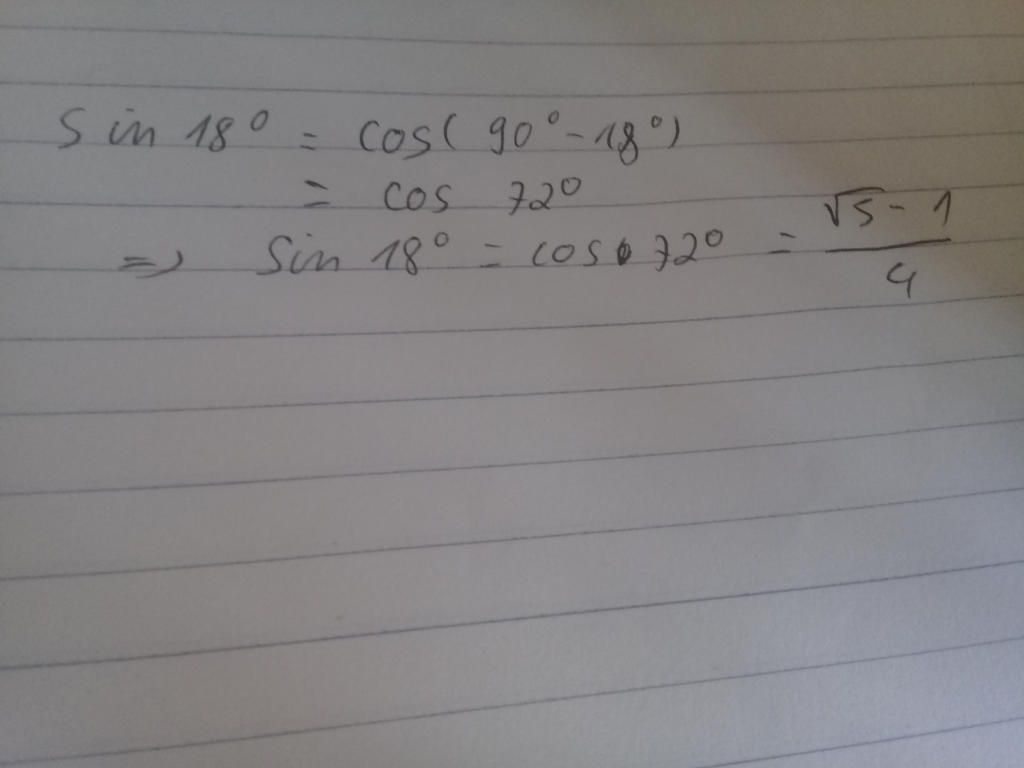 sin 18° = cos( 90° - 18°)
= cos 72°
=> sin 18° = cos 72° = (√5 - 1)/4